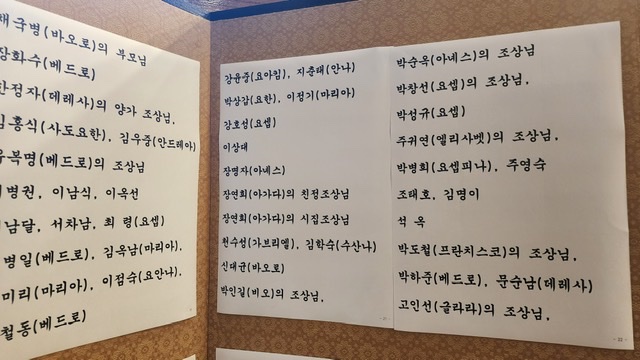 채국병(바오로)의 부모님
장화수(베드로)
한정자(데레사)의 양가 조상님,
김홍식(사도요한), 김우중(안드레아)
복명(베드로)의 조상님
병권, 이남식, 이옥선
남달, 서차남, 최 령(요셉)
병일(베드로), 김옥남(마리아),
미리(마리아), 이점숙(요안나),
철동(베드로)
강윤중(요아킴), 지춘태(안나)
박상갑(요한), 이정기(마리아)
강호섭(요셉)
이상대
장명자(아녜스)
장연희(아가다)의 친정조상님
장연희(아가다)의 시집조상님
천수섭(가브리엘), 김학숙(수산나)
신대균(바오로)
박인길(비오)의 조상님,
박순옥(아녜스)의 조상님
박창선(요셉)의 조상님,
박성규(요셉)
주귀연(엘리사벳)의 조상님,
박병희(요셉피나), 주영숙
조태호, 김명이
석 옥
박도철(프란치스코)의 조상님,
박하준(베드로), 문순남(데레사)
고인선(글라라)의 조상님,
- 22 -